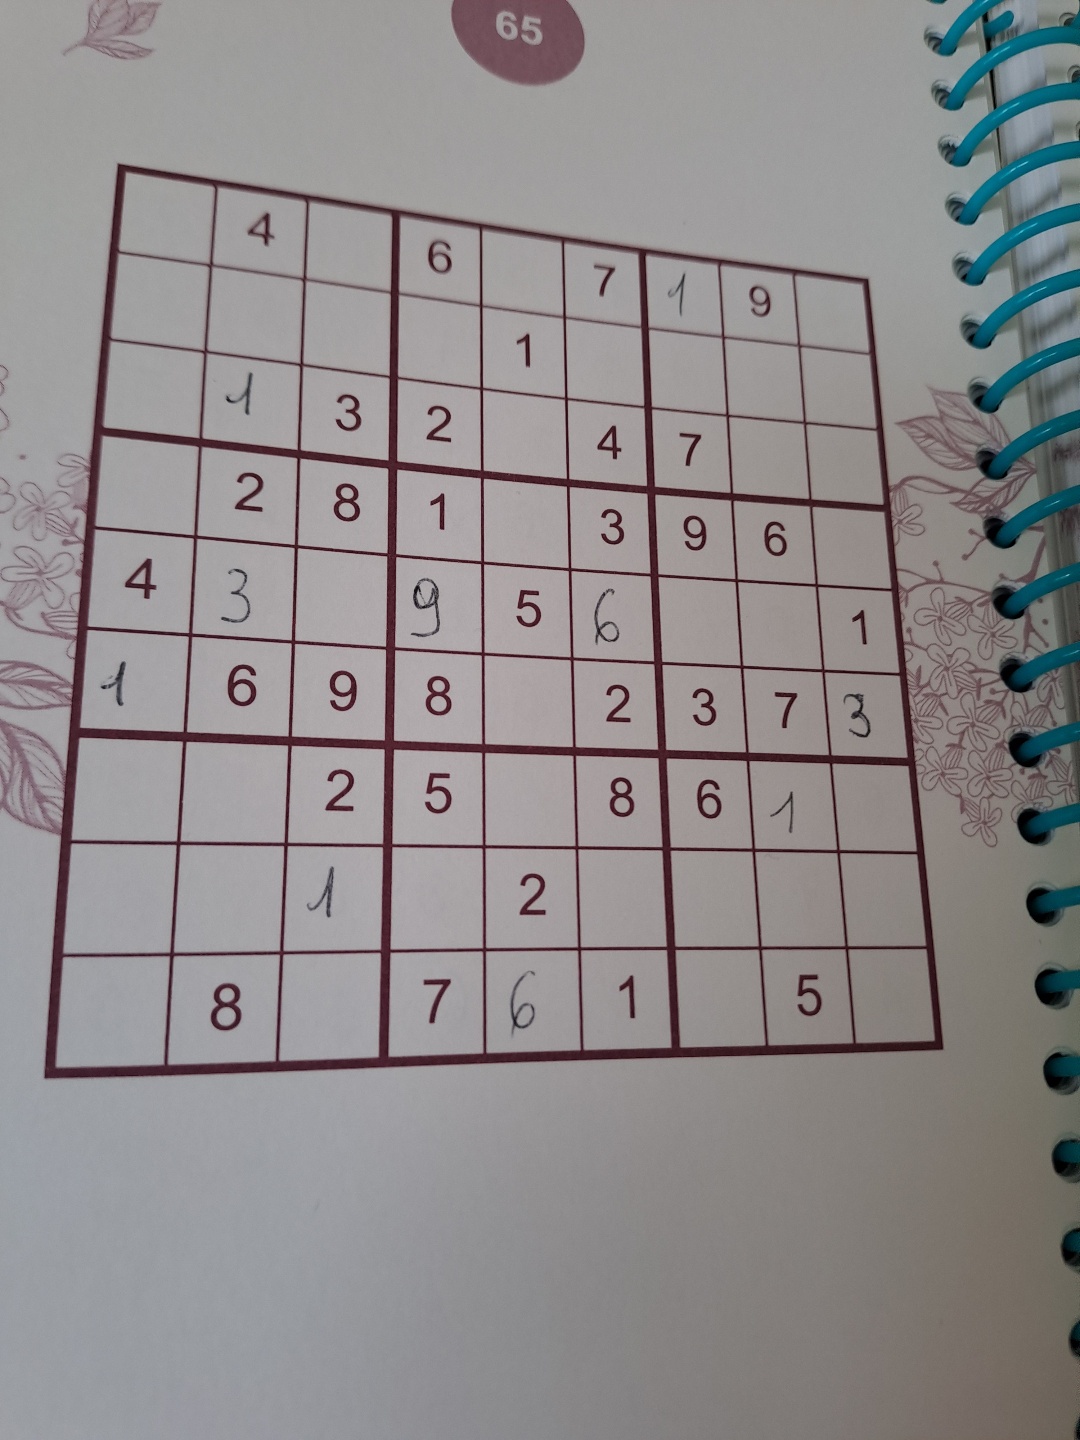 65
4 6 7 1 9
1
1 3 2 4 7
2 8 1 3 9 6
4 3 9 5 6 1
1 6 9 8 2 3 7 3
2 5 8 6 1
1 2
8 7 6 1 5